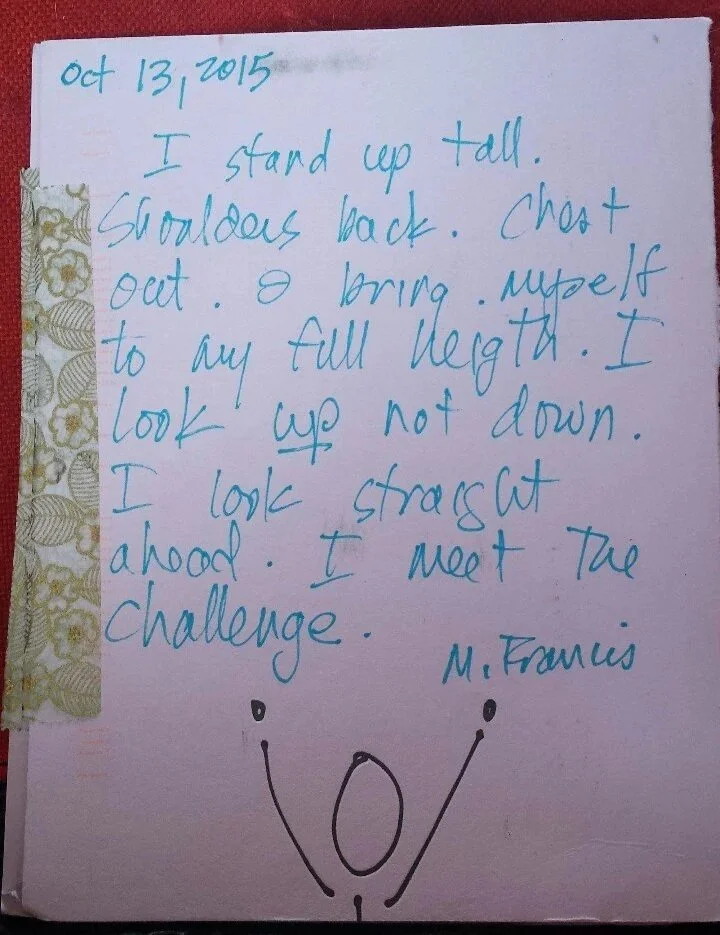 Oct 13, 2015
I stand up tall.
Shoulders back. Chest
out. I bring myself
to my full heigth. I
look up not down.
I look straight
ahead. I meet the
challenge.
M. Francis